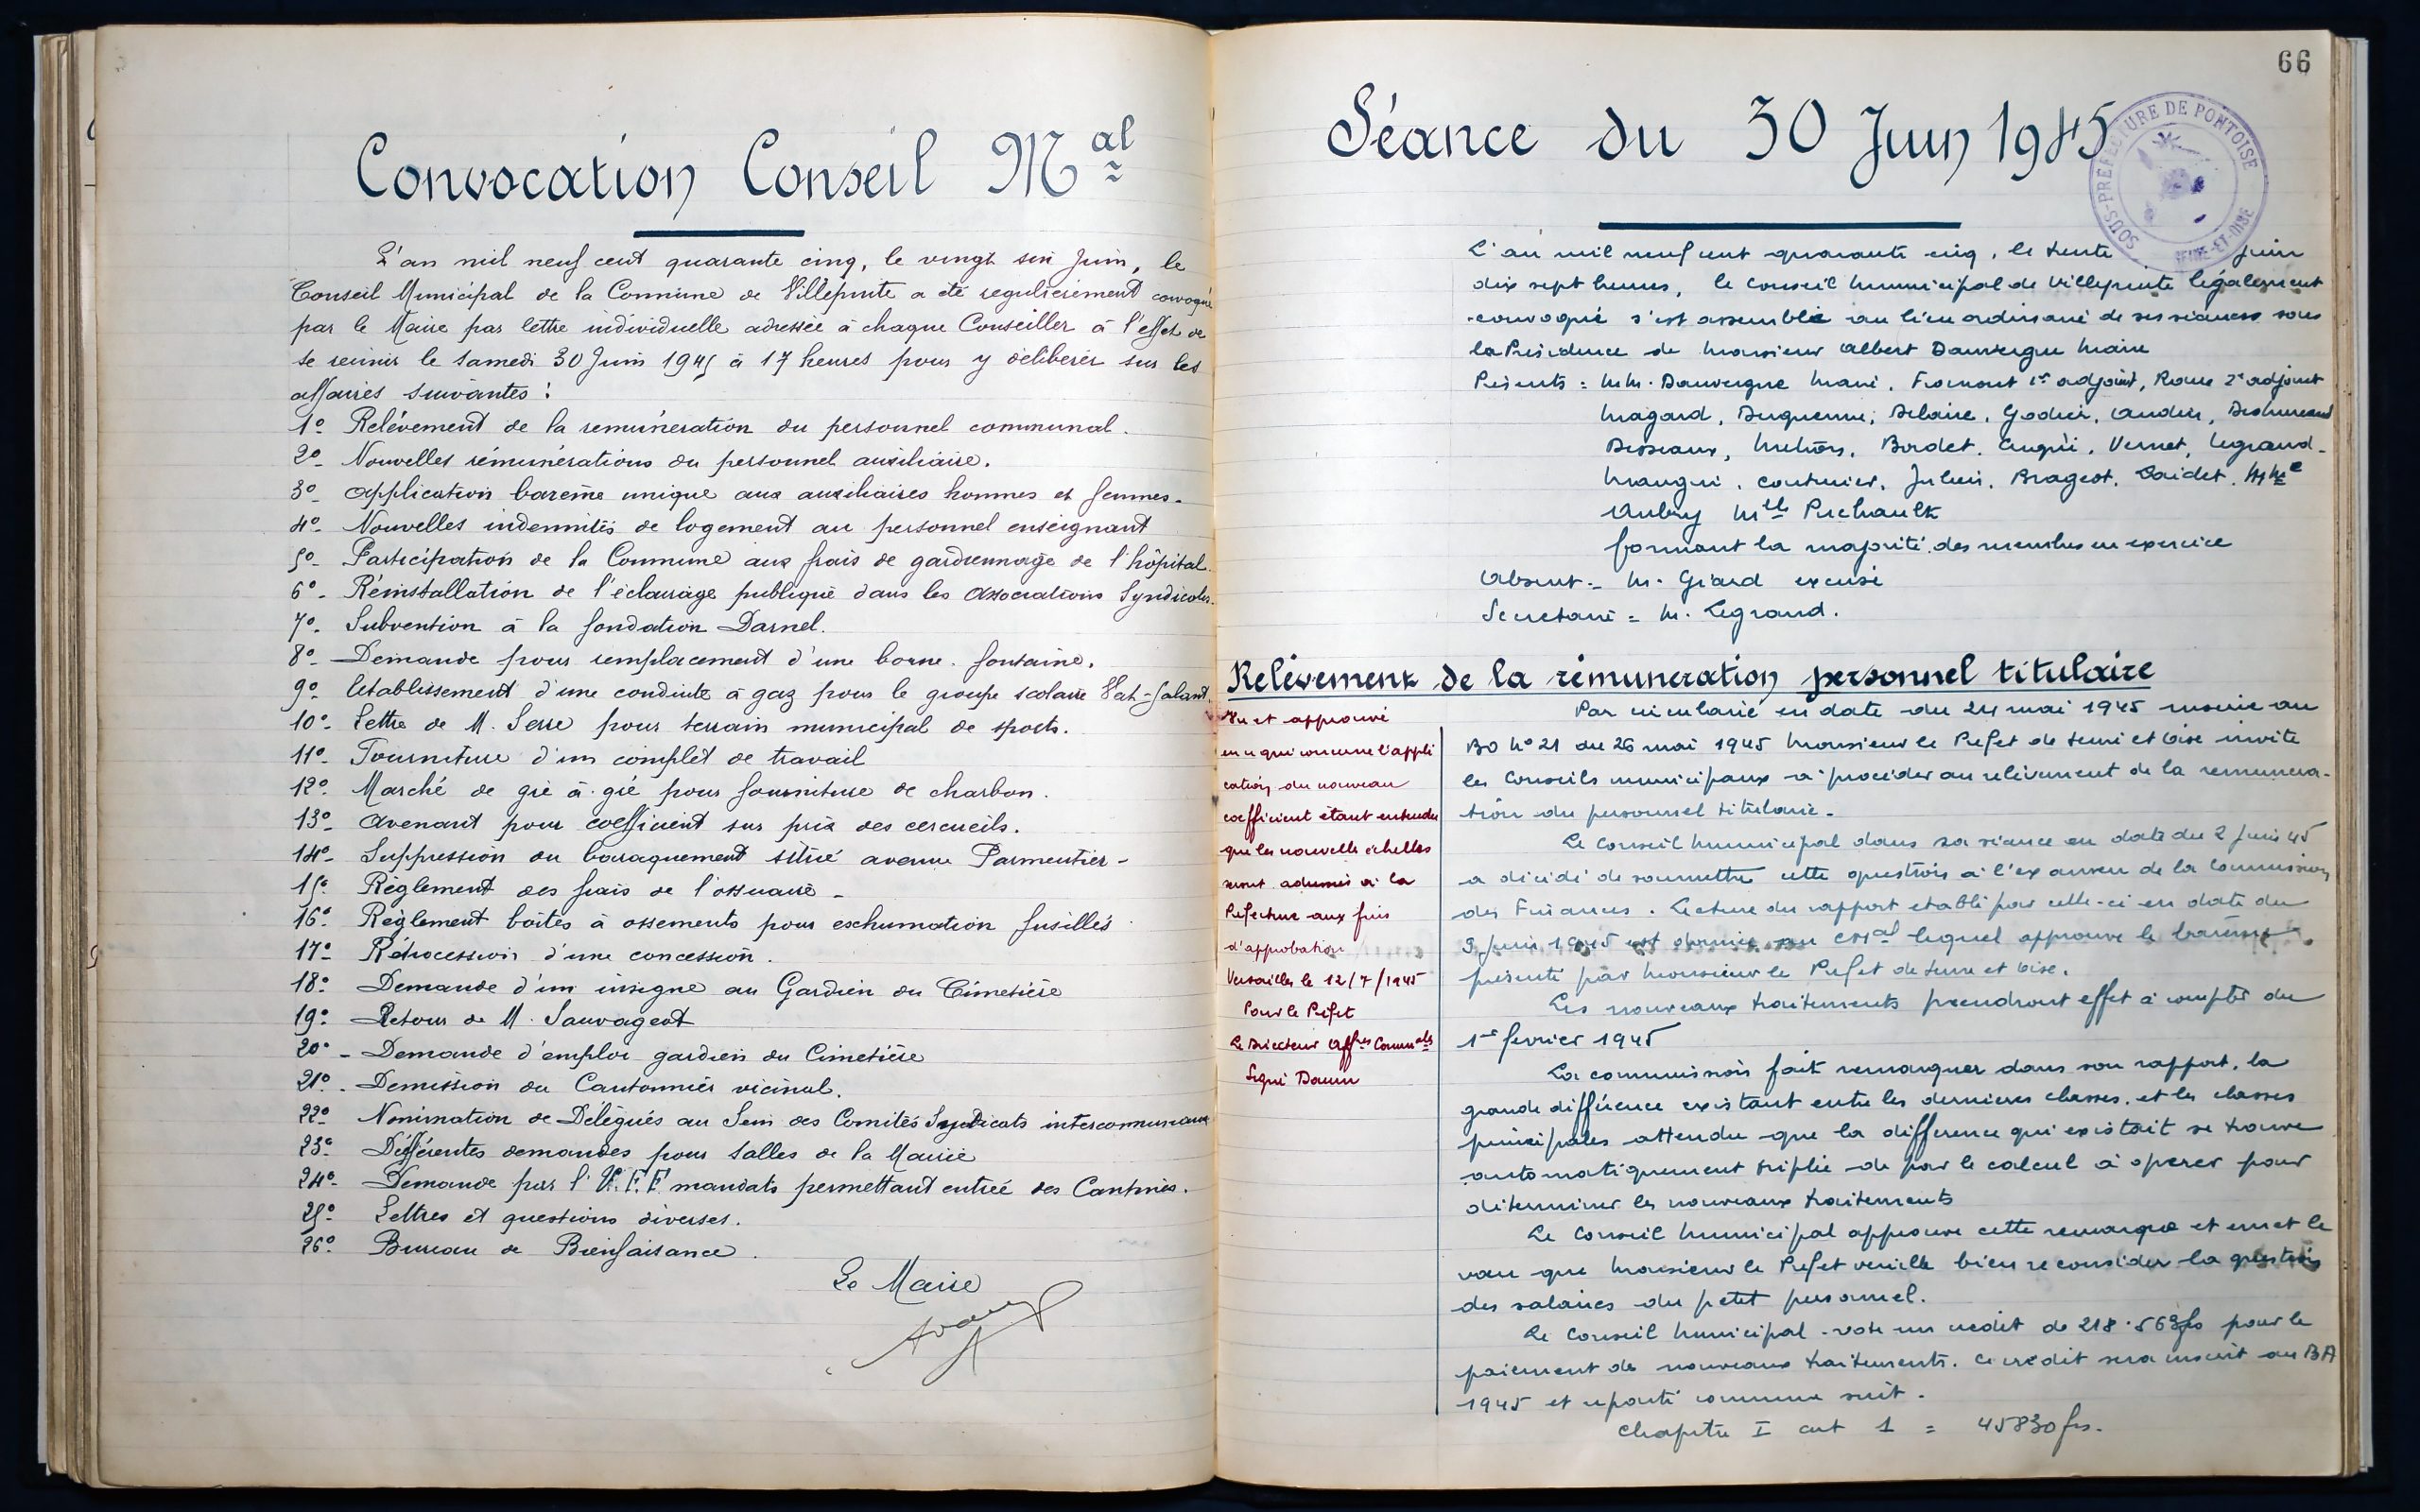 Convocation Conseil Mal
L'an mil neuf cent quarante cinq, le vingt six Juin, le
Conseil Municipal de la Commune de Villepinte a été regulièrement convoqué
par le Maire par lettre individuelle adressée à chaque Conseiller à l'effet de
se reunir le Samedi 30 Juin 1945 à 17 heures pour y délibérer sur les
affaires suivantes :
1º Relèvement de la remunération du personnel communal.
2º- Nouvelles rémunérations du personnel auxiliaire.
3º- Application barème unique aux auxiliaires hommes et femmes-
4º- Nouvelles indemnités de logement au personnel enseignant
5º- Participation de la Commune aux frais de gardiennage de l'hôpital.
6º- Réinstallation de l'éclairage publique dans les Associations Syndicales.
7º- Subvention à la fondation Darnel.
8º- Demande pour remplacement d'une borne-fontaine.
9º- Etablissement d'une conduite à gaz pour le groupe scolaire Vert-Galant.
10º- Lettre de M. Serre pour terrain municipal de sports.
11º- Fourniture d'un complet de travail
12º- Marché de gré à gré pour fourniture de charbon.
13º- Avenant pour coefficient sur prix des cercueils.
14º- Suppression du baraquement situé avenue Parmentier-
15º- Règlement des frais de l'ossuaire-
16º- Règlement boîtes à ossements pour exhumation fusillés
17º- Rétrocession d'une concession.
18º- Demande d'un insigne au Gardien du Cimetière
19º- Retour de M. Sauvageot
20º- Demande d'emploi gardien du Cimetière
21º- Demission du Cantonnier vicinal.
22º- Nomination de Délégués au Sein des Comités Syndicats intercommunaux
23º- Différentes demandes pour Salles de la Mairie
24º- Demande par l'U.F.F mandats permettant entrée des Cantines.
25º- Lettres et questions diverses.
26º- Bureau de Bienfaisance.
Le Maire
66
Séance du 30 Juin 1945
SOUS-PREFECTURE DE PONTOISE
SEINE-ET-OISE
L'an mil neuf cent quarante cinq, le trente juin
dix sept heures, le conseil municipal de Villepinte légalement
convoqué s'est assemblé au lieu ordinaire de ses séances sous
la Présidence de Monsieur Albert Dauvergne Maire
Présents : MM. Dauvergne Maire, Fromont 1er adjoint, Roux 2e adjoint
Magard, Duquenne, Delaire, Godier, Andin,
Desseaux, Bordet, Vernet, Legrand-
Mangin, Couturier, Julien, Brageot, Mme
Aubry Mlle Puchault
formant la majorité des membres en exercice
Absent:- M. Giard excusé
Secretaire = M. Legrand.
Relèvement de la rémunération personnel titulaire
Vu et approuvé
en ce qui concerne l'appli
cation du nouveau
coefficient étant entendu
que les nouvelle échelles
seront adressés à la
Préfecture aux fins
d'approbation
Versailles le 12/7/1945
Pour le Préfet
Le Directeur Affres Commales
Signé Daum
Par circulaire en date du 24 mai 1945 inserée au
BO Nº 21 du 26 mai 1945 Monsieur le Préfet de Seine et Oise invite
les Conseils municipaux à procéder au relèvement de la remunera-
tion du personnel titulaire.
Le Conseil Municipal dans sa séance en date du 2 Juin 45
a décidé de soumettre cette question à l'examen de la Commission
des Finances. Lecture du rapport etabli par celle-ci en date du
9 Juin 1945 est donnée au CMal lequel approuve le barème
présenté par Monsieur le Préfet de Seine et Oise.
Les nouveaux traitements prendront effet à compter du
1er fevrier 1945
La commission fait remarquer dans son rapport, la
grande différence existant entre les dernieres classes, et les classes
principales attendu que la différence qui existait se trouve
automatiquement triplée de par le calcul à operer pour
déterminer les nouveaux traitements
Le Conseil Municipal approuve cette remarque et emet le
vœu que Monsieur le Préfet veuille bien reconsiderer la question
des salaires du petit personnel.
Le Conseil Municipal vote un crédit de 218.563fs pour le
paiement des nouveaux traitements. Ce credit sera inscrit au BA
1945 et reparti comme suit.
Chapitre I art 1 = 45830 frs.